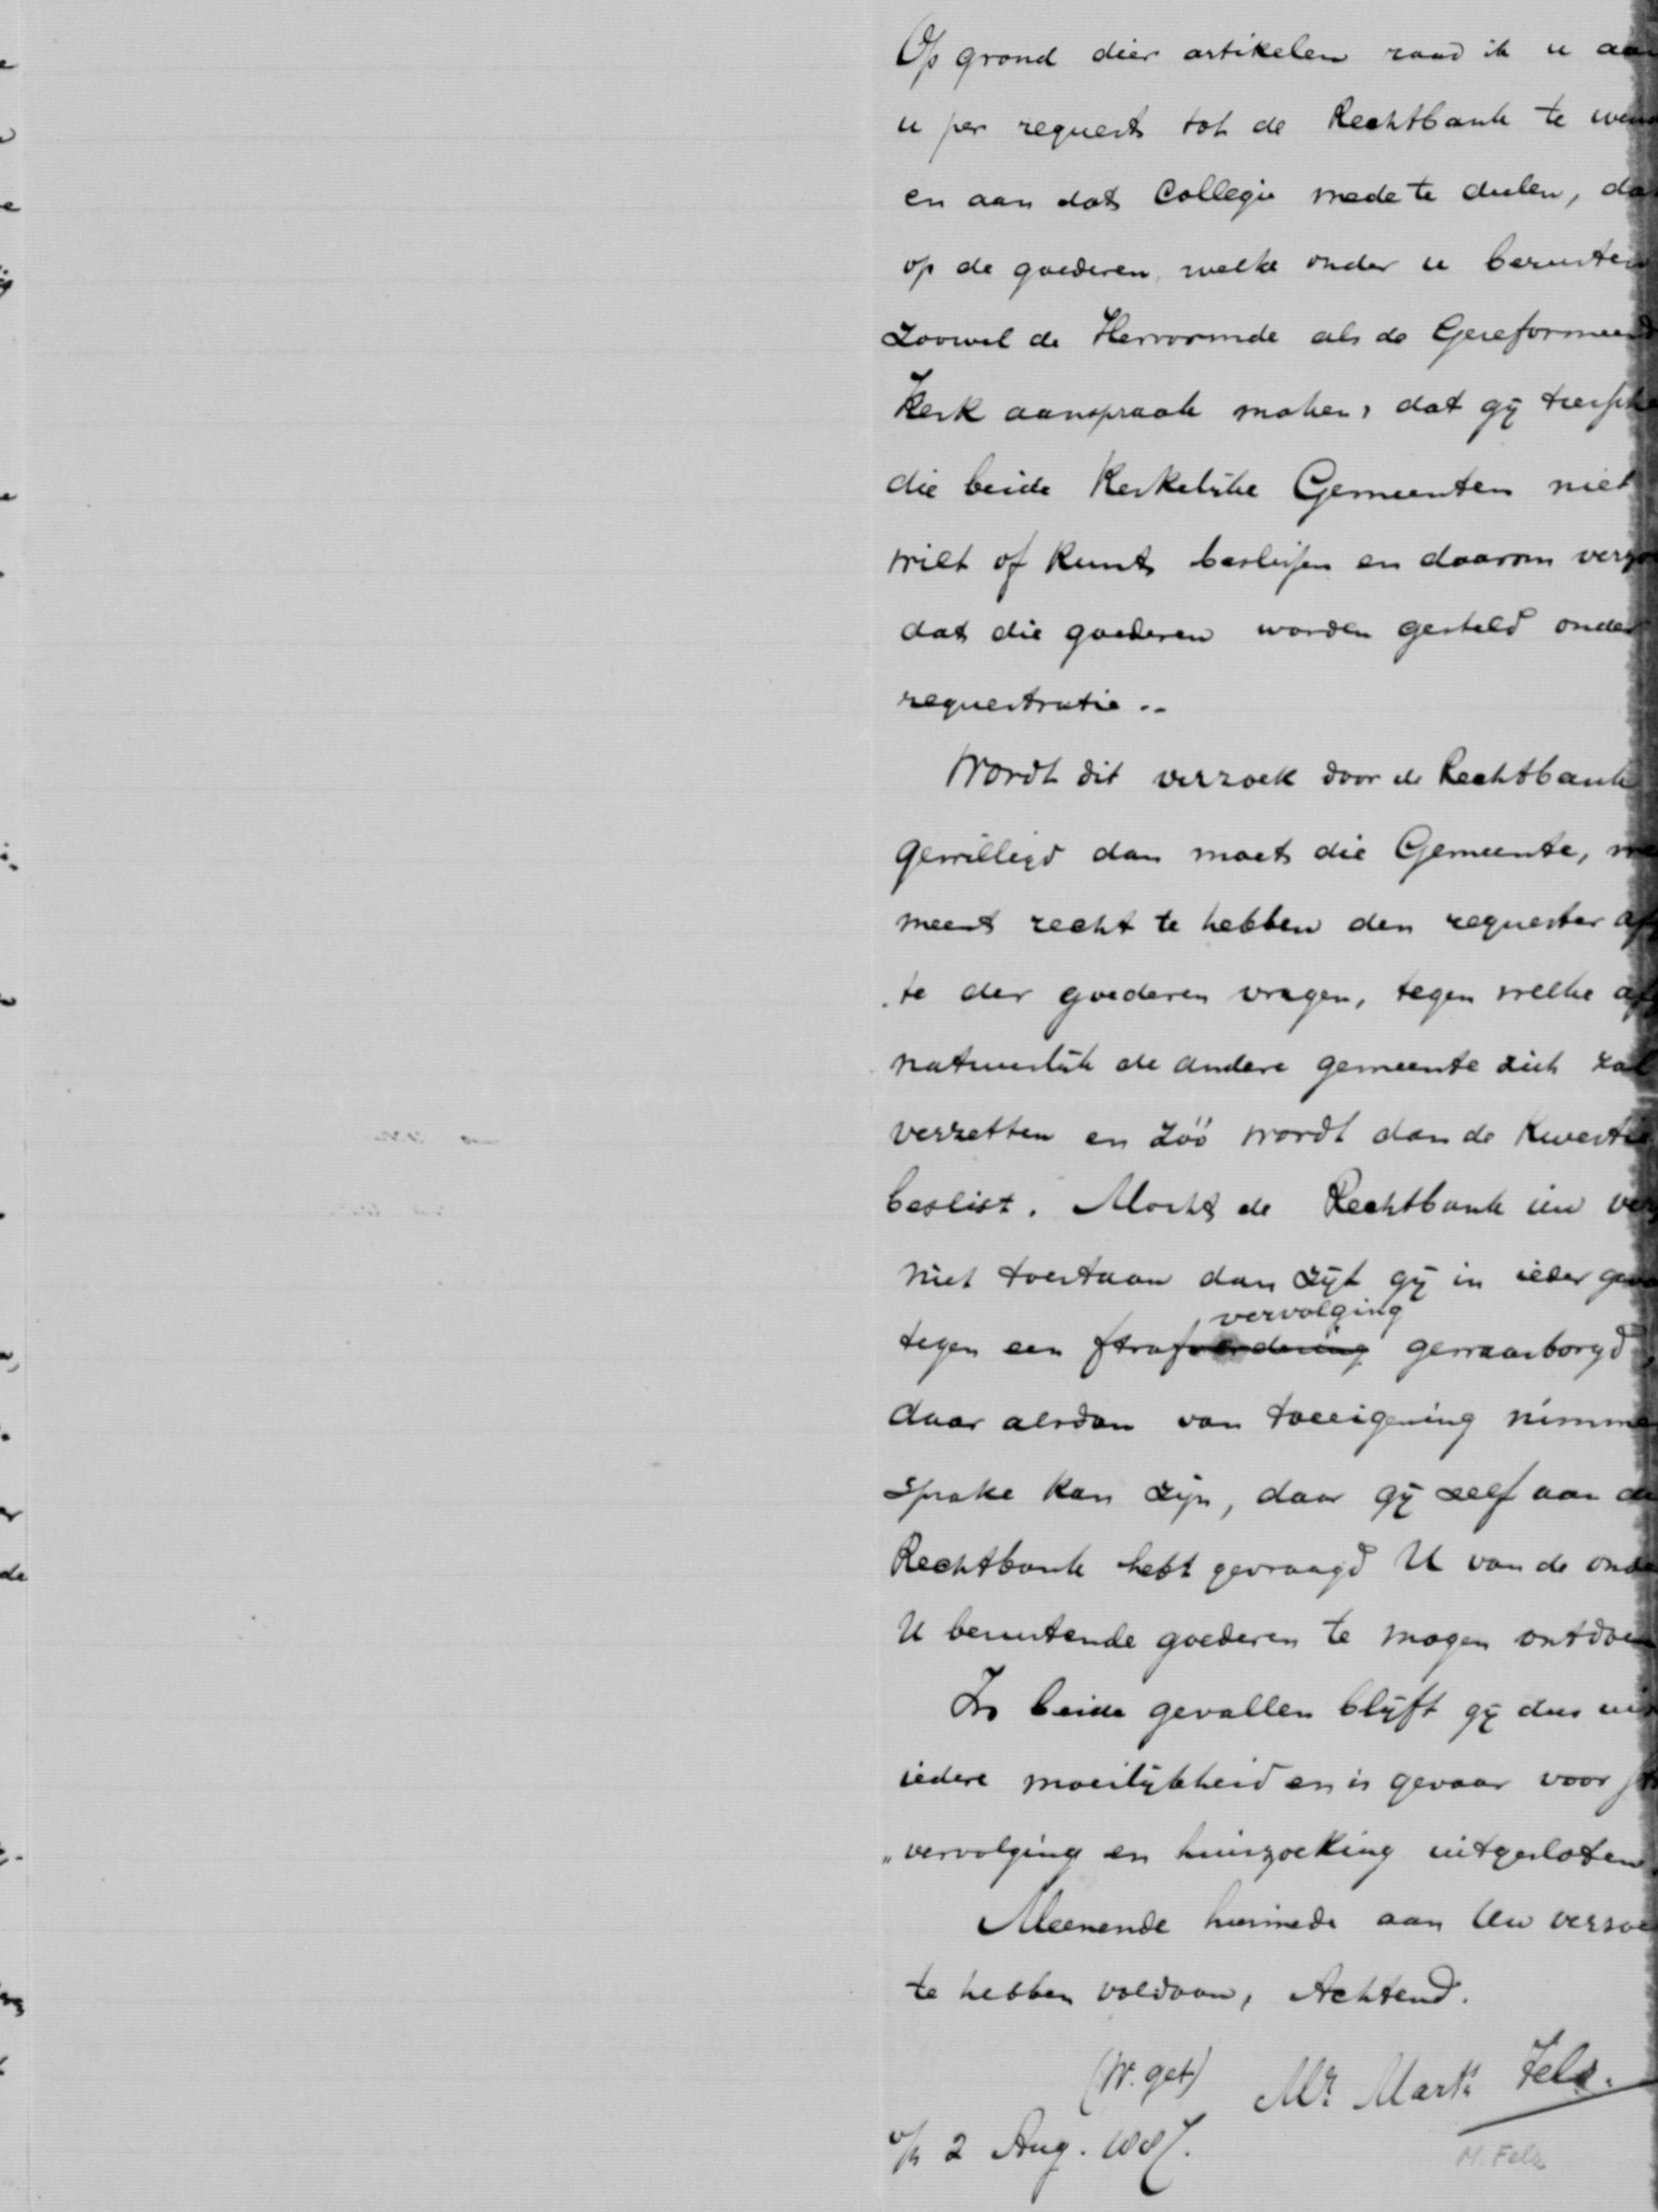 Op grond dier artikelen raad ik u aan
u per request tot de Rechtbank te wend
en aan dat Collegie mede te deelen, da
op de goederen, welke onder u berusten
zoowel de Hervormde als de Gereformeerd
Kerk aanspraak maken, dat gij tussche
die beide Kerkelijke Gemeenten niet
wilt of kunt beslissen en daarom verzo
dat die goederen worden gesteld onder
sequestratie..
Wordt dit verzoek door de Rechtbank
gewilligd dan moet die Gemeente, we
meent recht te hebben den sequester afg
te der goederen vragen, tegen welke afg
natuurlijk de andere gemeente zich zal
verzetten en zóó wordt dan de Kwestie
beslist. Mocht de Rechtbank uw verz
niet toestaan dan zijt gij in ieder geva
vervolging
tegen een strafvordering gewaarborgd,
daar alsdan van toeeigening nimme
sprake kan zijn, daar gij zelf aan de
Rechtbank hebt gevraagd U van de onde
U berustende goederen te mogen ontdoen
In beide gevallen blijft gij dus uit
iedere moeilijkheid en is gevaar voor st
„vervolging en huiszoeking uitgesloten.
Meenende hiermede aan Uw verzoe
te hebben voldaan, Achtend.
(W. get) Mr. Marts. Fels.
2 Aug. 1887.
M. Fels